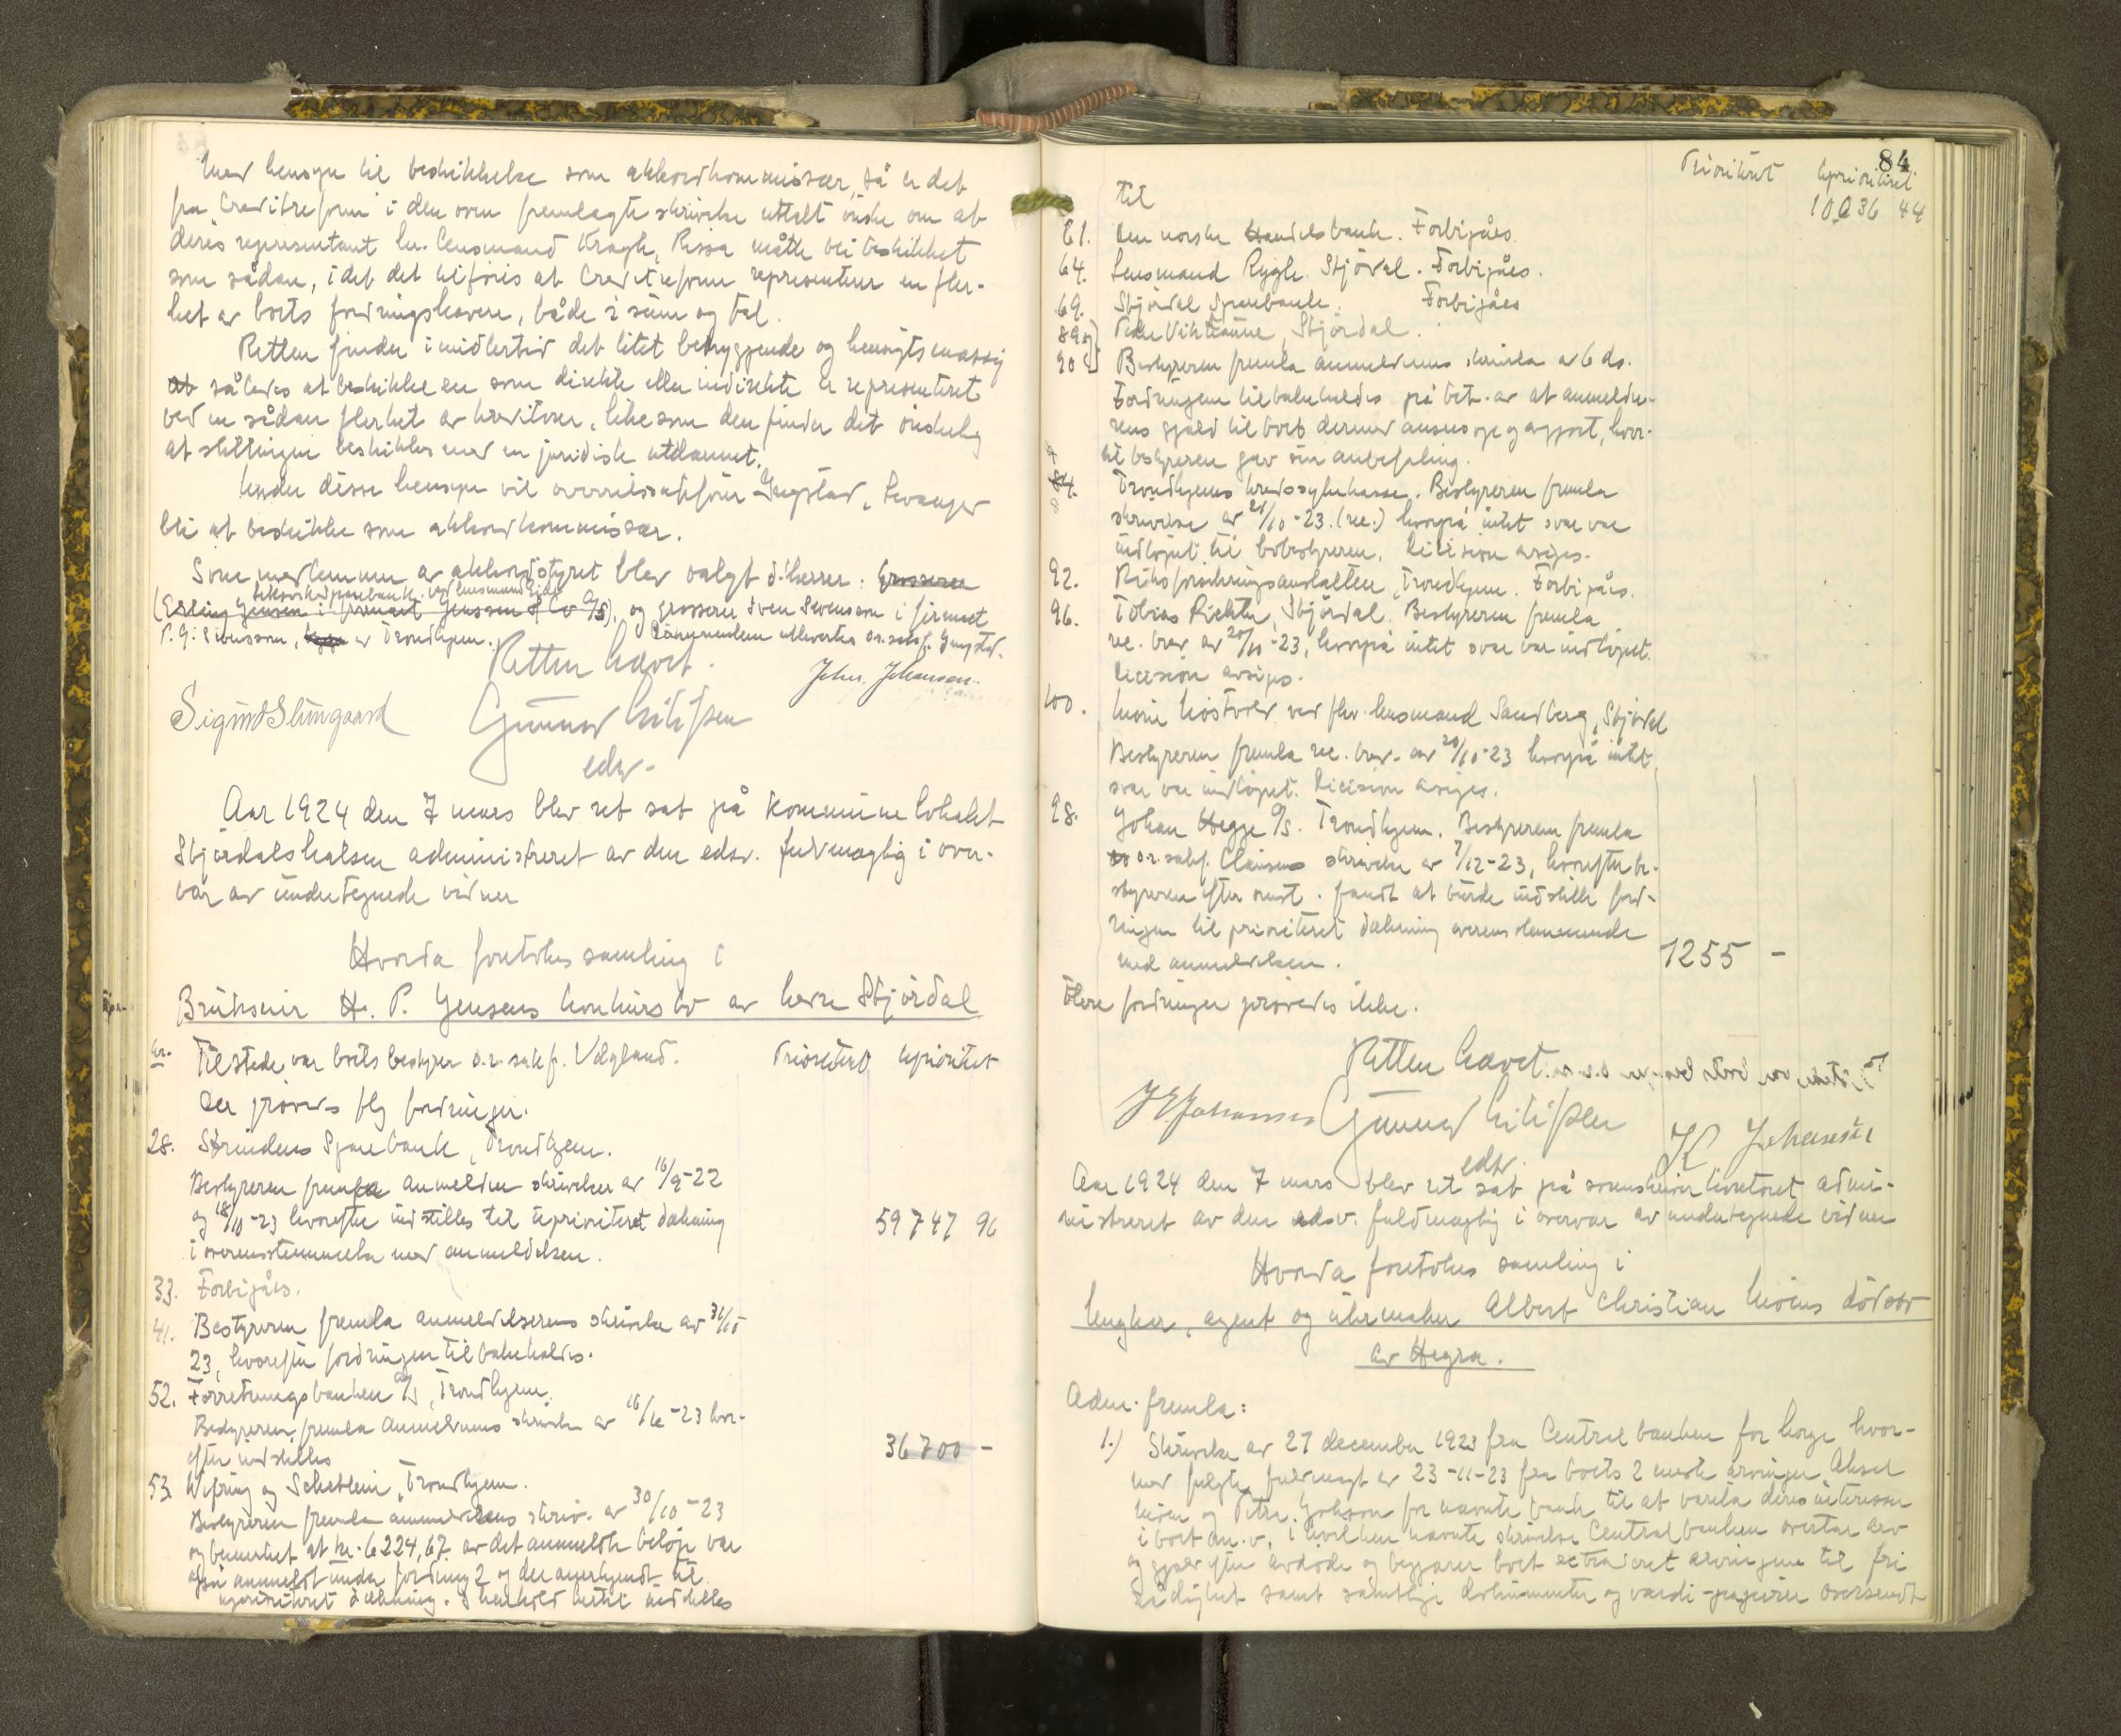 Med hensyn til beskikkelse som akkordkommissær, så er det
fra "Creditreform" i den oven fremlagte skrivelse uttalt önske om at
deres representant hr. lensmand Kragh, Rissa måtte bli beskikket
som sådan, i det det tilföies at Creditreform representerer en fler-
het av boets fordringshavere, både i sum og tal.
Retten finder imidlertid det litet betryggende og hensigtsmæssig
at således at beskikke en som direkte eller indirekte er representeret
ved en sådan flerhet av kreditorer, likesom den finder det önskelig
at stillingen beskikkes med en juridisk utdannet.
Under disse hensyn vil overretssakförer Ingstad, Levanger
bli at beskikke som akkordkommissær.
Som medlemmer av akkordstyret blev valgt d'herrer: Grosserer
(Erling Jensen i firmaet Jenssen & Co A/S), og grosserer Sven Svensson i firmaet
P. G. Svensson, av Trondhjem.
Retten hævet.
Johs. Johansen.
Sigurd Slungaard
edsv.
Aar 1924 den 7 mars blev ret sat på kommunelokalet
Stjördalshalsen administreret av den edsv. fuldmægtig i over-
vær av undertegnede vidner
Hvorda foretokes samling i
Brukseier H. P. Jensens konkursbo av herre Stjördal
Nr. Tilstede var boets bestyrer o.r.sakf. Velgland. Prioritert Uprioritet
Der prövedes flg fordringer.
28. Strindens Sparebank, Trondhjem.
Bestyreren fremla anmelder skrivelser av 16/9-22
og 18/10-23 hvorefter indstilles til uprioriteret dækning 59747 96
i overensstemmelse med anmeldelsen.
33. Forbigåes.
41. Bestyreren fremla anmelderens skrivelse av 31/10
23, hvorefter fordringen tilbakeholdes.
52. Forretningsbanken A/S, Trondhjem.
Bestyreren fremla anmelderens skrivelse av 16/10-23 hvor-
efter indstilles 36700 -
53. Wefring og Scheflein, Trondhjem.
Bestyreren fremla anmelderens skriv. av 30/10-23
og bemerket at kr. 6224,67 av det anmeldte belöp var
også anmeldt under fordring 2 og der anerkjendt til
uprioriteret dækning. I henhold hertil indstilles
84
Prioritert Uprioritert
til 10036 44
61. Den norske Handelsbank. Forbigåes.
64. Lensmand Rygh. Stjördal. Forbigåes.
69. Stjördal Sparebank. Forbigåes
89 og Peder Vikstaune, Stjördal.
90 Bestyreren fremla anmelderens skrivelse av 6 ds.
Fordringen tilbakeholdes på bet. av at anmelde-
rens gjæld til boet dermed ansees opgjort, hvor-
til bestyreren gav sin anbefaling.
84. Trondhjems kredssykekasse. Bestyreren fremla
skrivelse av 20/10-23. (rec.) hvorpå intet svar var
indlöpet til bobestyreren. Decision avsiges.
92. Riksforsikringsanstalten, Trondhjem. Forbigåes.
96. Tobias Richter, Stjördal. Bestyreren fremla
rec. brev av 20/10-23, hvorpå intet svar var indlöpet.
Decision avsiges.
100. Marie ved fhv. lensmand Sandberg, Stjördal
Bestyreren fremla rec. brev av 20/10-23 hvorpå intet
svar var indlöpet. Decision avsiges.
98. Johan Hegge A/S. Trondhjem. Bestyreren fremla
o.r.sakf. Clausens skrivelse av 7/12-23, hvorefter be-
styreren efter omst. fandt at burde indstille ford-
ringen til prioriteret dækning overensstemmende
med anmeldelsen. 1255 -
Flere fordringer prövedes ikke.
Retten hævet.
J E Johansen
K Johansen
edsv.
Aar 1924 den 7 mars blev ret sat på sorenskriverkontoret admi-
nistreret av den edsv. fuldmægtig i overvær av undertegnede vidner
Hvorda foretokes samling i
Ungkar, agent og uhrmaker Albert Christian Moens dödsbo
av Hegra.
Adm. fremla:
1.) Skrivelse av 27 december 1923 fra Centralbanken for Norge hvor-
med fulgte fuldmagt av 23-11-23 fra boets 2 arvinger Aksel
Moen og Petra Jonsson for nævnte bank til at vareta deres interesser
i boet m.v. i hvilken nævnte skrivelse Centralbanken overtar arv
og gjæld efter avdöde og begjærer boet extraderet arvingene til fri
rådighet samt samtlige dokumenter og værdi-papirer oversendt